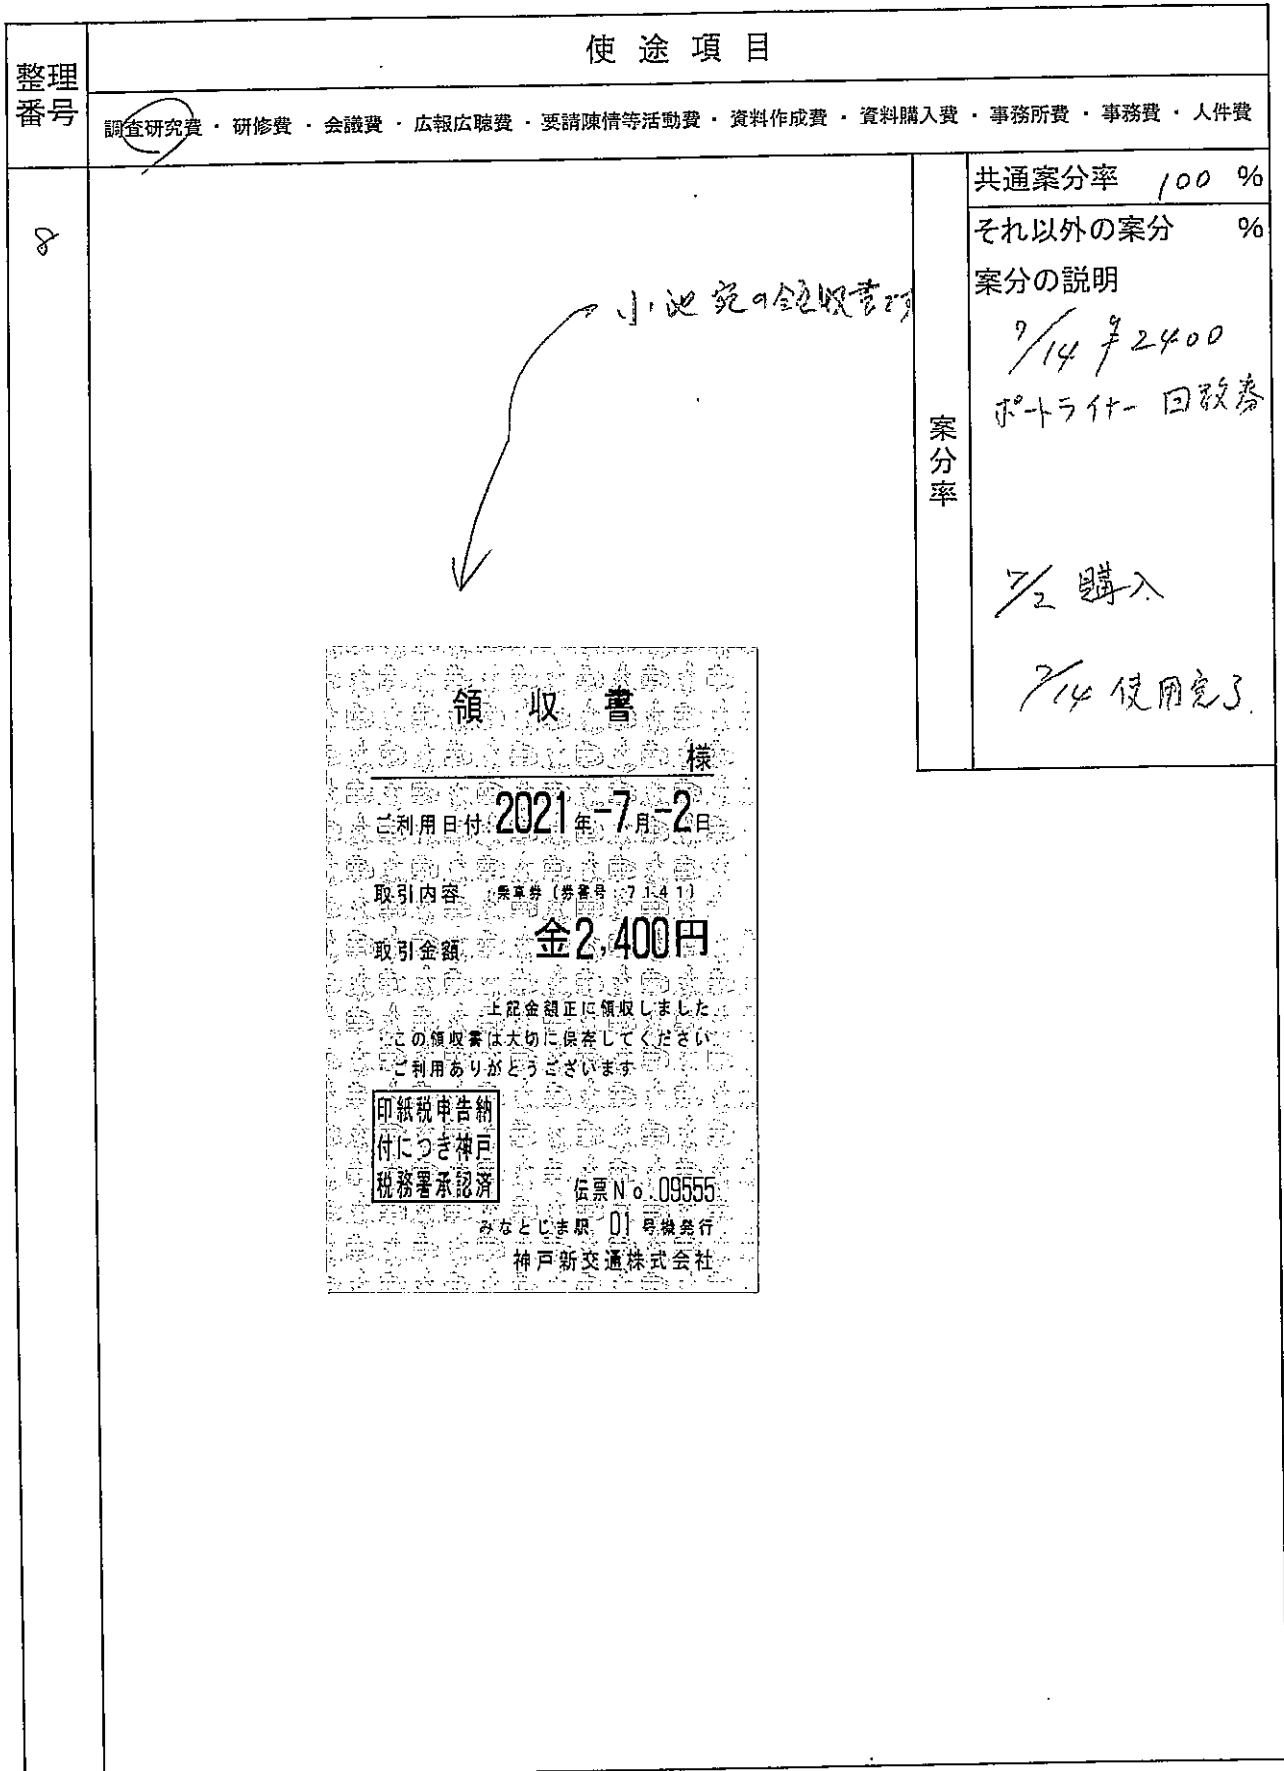 使途項目
整理
番号
調査研究費・研修費・会議費・広報広聴費・要請陳情等活動費・資料作成費・資料購入費・事務所費・事務費・人件費
8
共通案分率 100 %
それ以外の案分 %
案分の説明
7/14 ¥2400
ポートライナー 回数券
7/2 購入
7/14 使用完了.
案分率
小池宛の領収書です
領収書
様
ご利用日付 2021年-7月-2日
取引内容 乗車券(券番号 7141)
取引金額 金2,400円
上記金額正に領収しました
この領収書は大切に保存してください
ご利用ありがとうございます
印紙税申告納
付につき神戸
税務署承認済
伝票No.09555
みなとじま駅 01 号機発行
神戸新交通株式会社